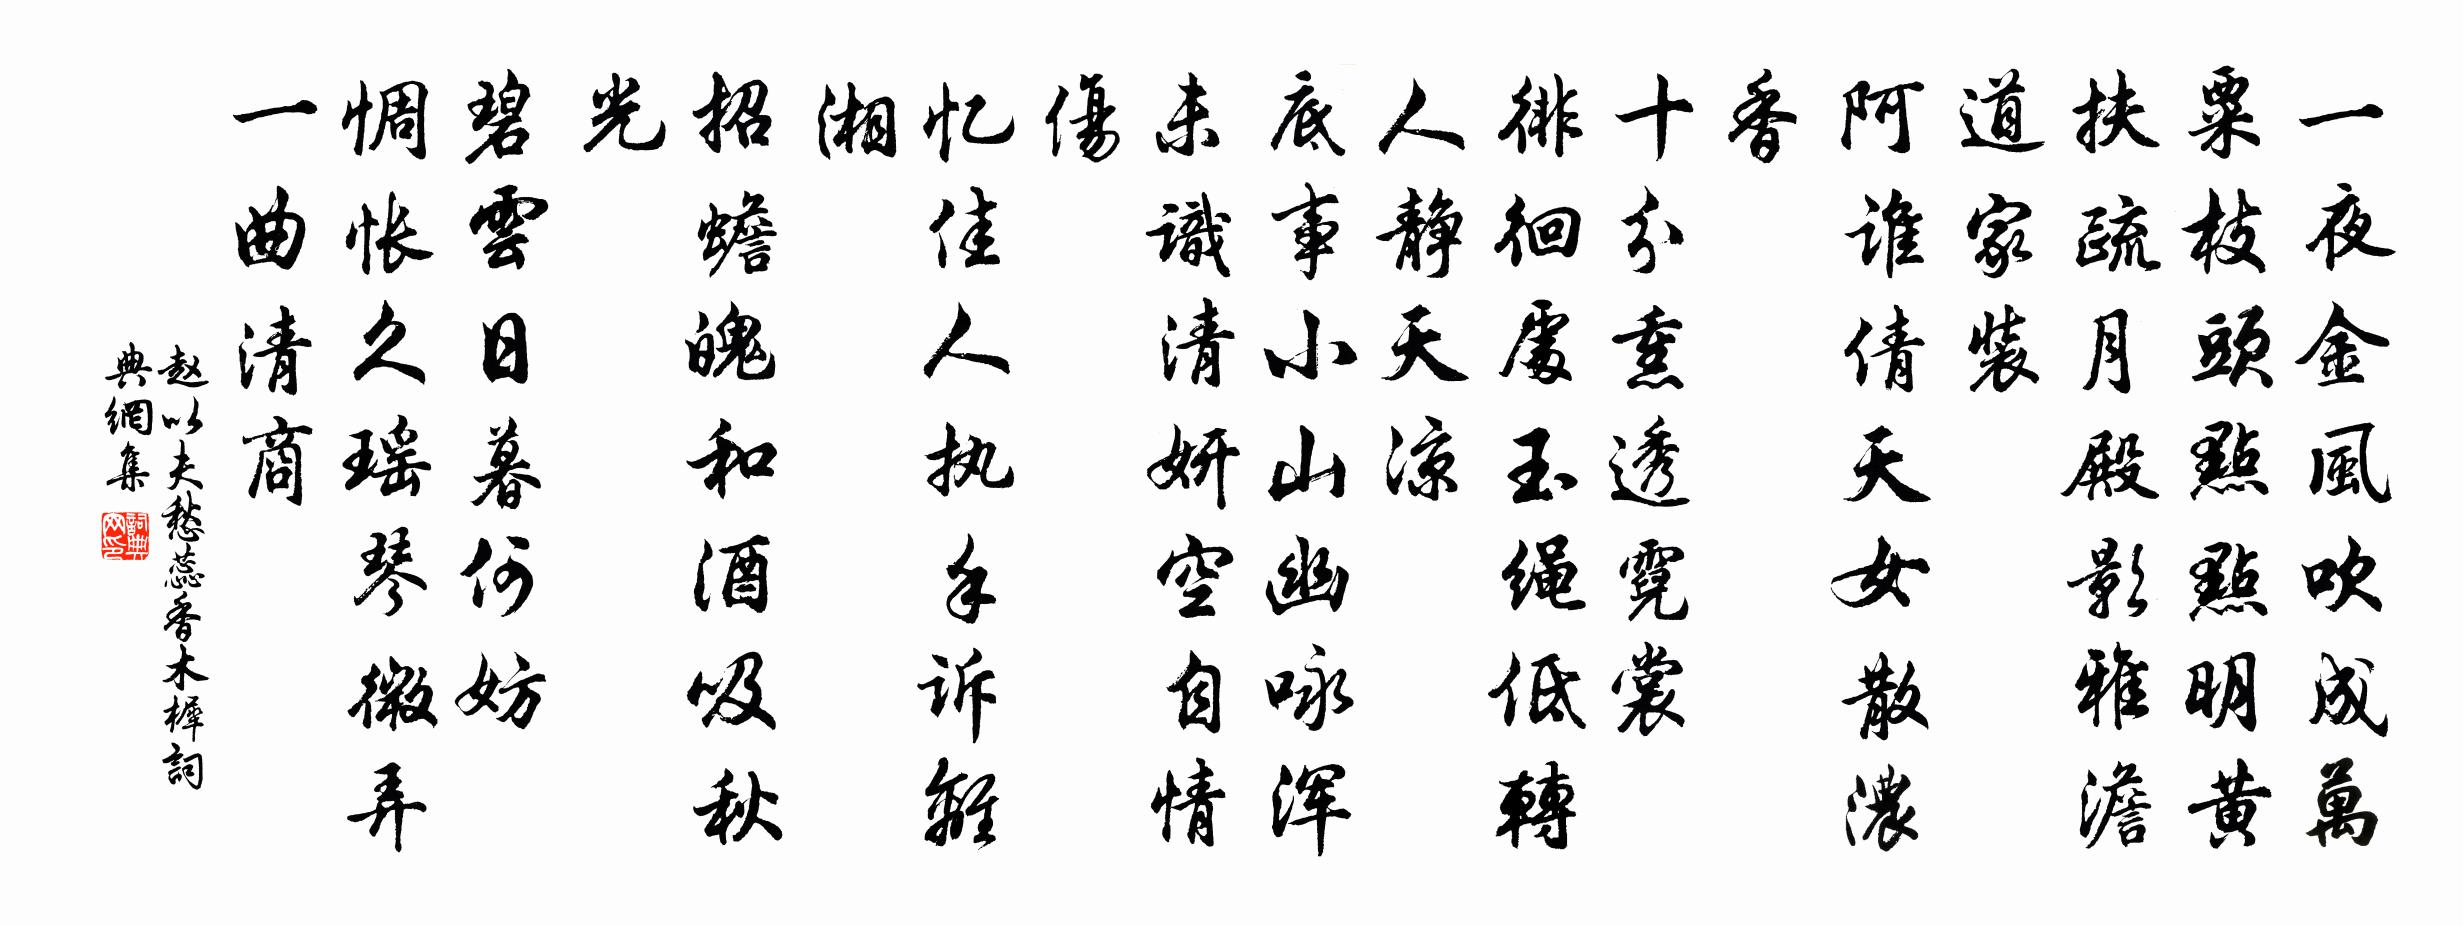 一夜金風吹成萬
粟枝頭點點明黃
扶疏月殿影雅澹
道家裝
阿谁倩天女散濃
香
十分熏透霓裳
徘徊處玉绳低轉
人靜天涼
底事小山幽咏浑
未識清妍空自情
傷
忆佳人执手诉離
湘
招蟾魄和酒吸秋
光
碧雲日暮何妨
惆怅久瑶琴微弄
一曲清商
赵以夫愁蕊香木樨詞
典網集
詞典
网印